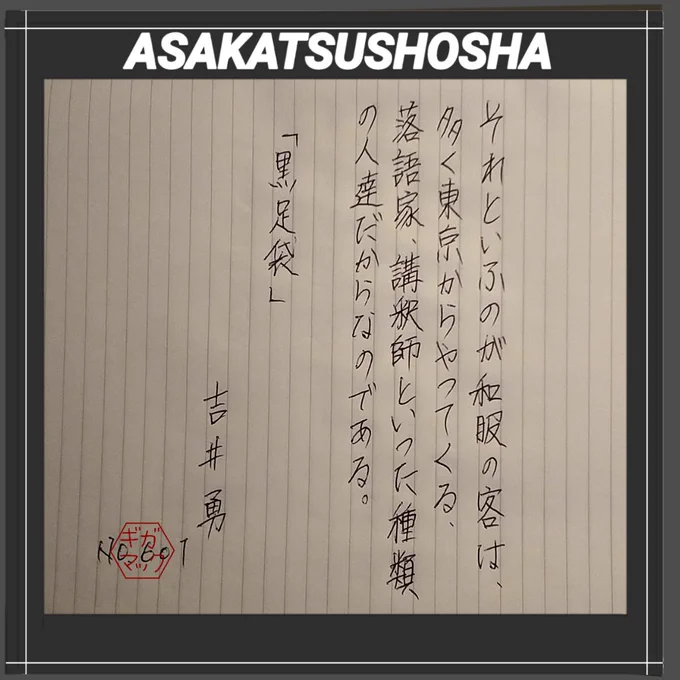 ASAKATSUSHOSHA
それといふのが和服の客は、
多く東京からやってくる、
落語家、講釈師といった種類
の人達だからなのである。
「黒足袋」
吉井勇
No 601
ギガ
マック